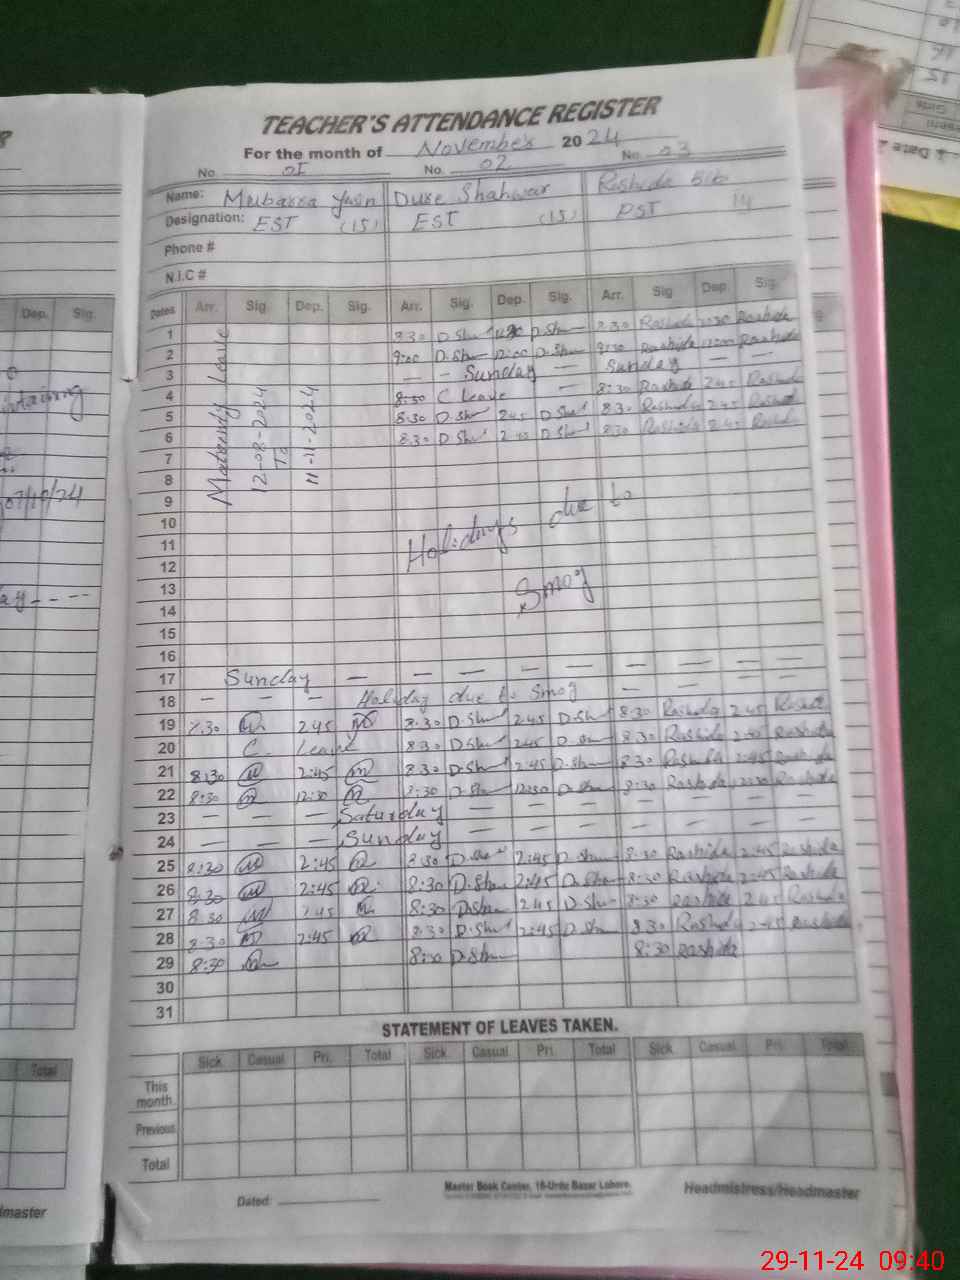 TEACHER'S ATTENDANCE REGISTER
For the month of November 2024
No. 01 No. 02 No. 03
Name: Mubarra Yasin Dure Shahwar Rashida Bibi
Designation: EST (15) EST (15) PST 14
Phone #
N.I.C #
Dates Arr. Sig. Dep. Sig. Arr. Sig. Dep. Sig. Arr. Sig Dep. Sig.
Maternity Leave
12-08-2024
To
11-11-2024
1 8:30 D.Sh D.Sh 8:30 Rashida Rashida
2 9:00 D.Sh 12:00 D.Sh Rashida 12:00 Rashida
3 — - Sunday — Sunday — —
4 8:30 C Leave — 8:30 Rashida 2:45 Rashida
5 8:30 D.Sh 2:45 D.Sh 8:30 Rashida 2:45 Rashida
6 8:30 D.Sh 2:45 D.Sh 8:30 Rashida 2:45 Rashida
7
8
9
10
11 Holidays due to
12
13 Smog
14
15
16
17 Sunday — — — — — — — — —
18 — — — Holiday due to Smog — — — —
19 7:30 2:45 8:30 D.Sh 2:45 D.Sh 8:30 Rashida 2:45 Rashida
20 C. Leave 8:30 D.Sh 2:45 D.Sh 8:30 Rashida 2:45 Rashida
21 8:30 2:45 8:30 D.Sh 2:45 D.Sh 8:30 Rashida 2:45 Rashida
22 8:30 12:30 8:30 D.Sh 12:30 D.Sh 8:30 Rashida 12:30 Rashida
23 — — — Saturday — — — — — — —
24 — — — Sunday — — — — — — —
25 8:30 2:45 8:30 D.Sh 2:45 D.Sh 8:30 Rashida 2:45 Rashida
26 8:30 2:45 8:30 D.Sh 2:45 D.Sh 8:30 Rashida 2:45 Rashida
27 8:30 2:45 8:30 D.Sh 2:45 D.Sh 8:30 Rashida 2:45 Rashida
28 8:30 2:45 8:30 D.Sh 2:45 D.Sh 8:30 Rashida 2:45 Rashida
29 8:30 8:30 D.Sh 8:30 Rashida
30
31
STATEMENT OF LEAVES TAKEN.
Sick Casual Pri. Total Sick Casual Pri. Total Sick Casual Pri. Total
This month
Previous
Total
Dated:
Master Book Center, 16-Urdu Bazar Lahore.
Headmistress/Headmaster
Dep. Sig.
07/10/24
Total
master
29-11-24 09:40